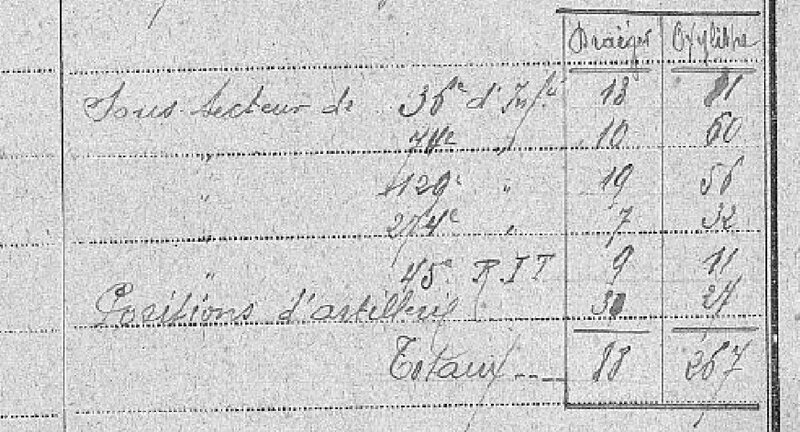 Draëger Oxylithe
Sous secteur de 36e d'Inf.ie 13 81
" 74e " 10 60
" 129e " 19 56
" 274e " 7 32
" 45e R.I.T 9 11
Positions d'artillerie 30 27
Totaux 88 267